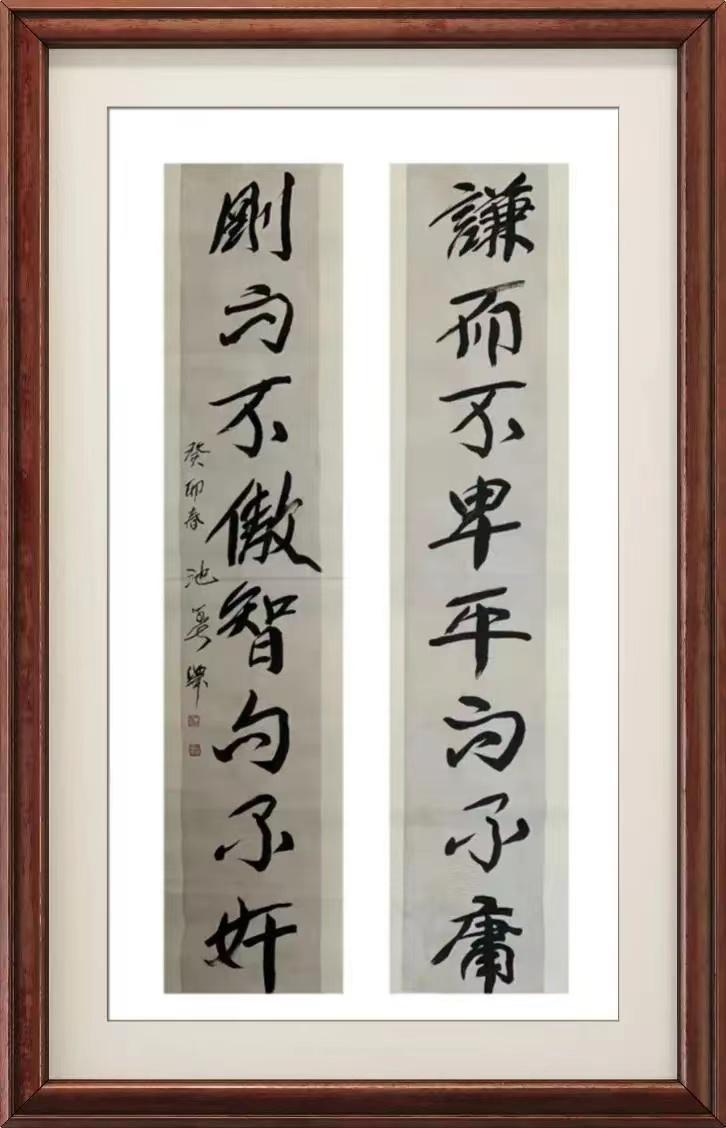 謙而不卑平而不庸
剛而不傲智而不奸
癸卯春 池